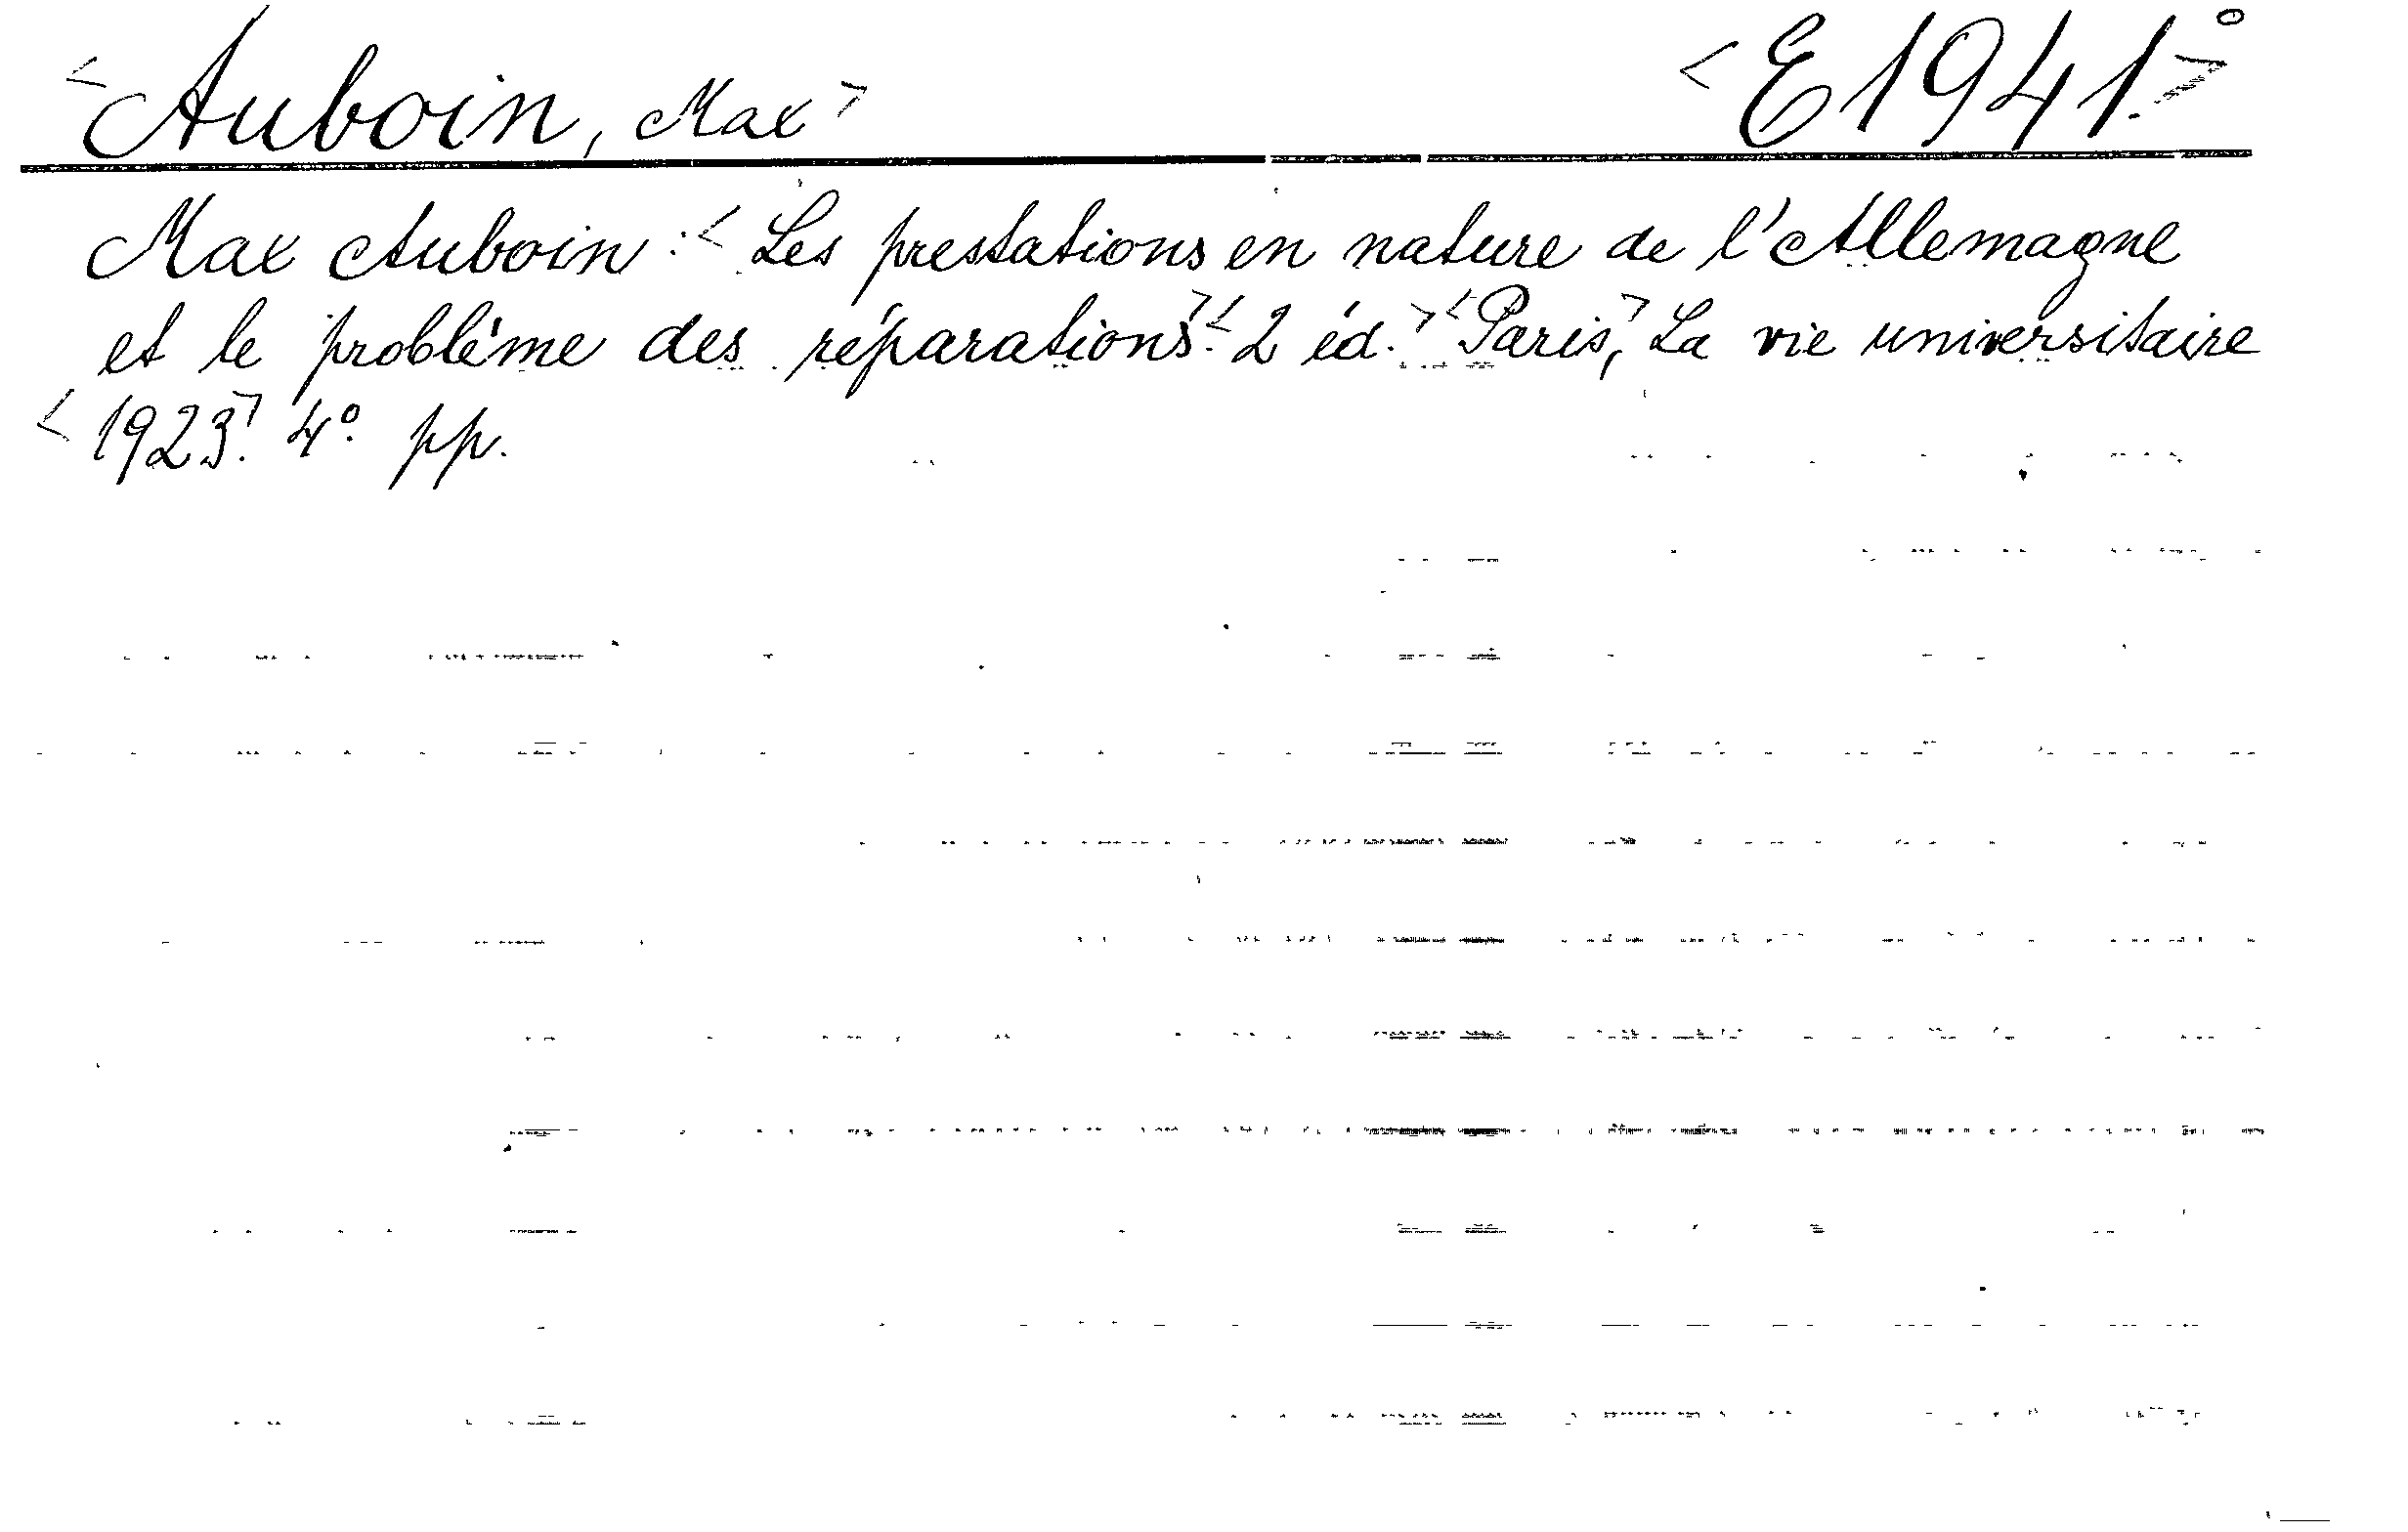 <Auboin, Max> <E1941.>°
Max Auboin: <Les prestations en nature de l'Allemagne
et le problème des réparations>.<2 éd.> <Paris>, La vie universitaire
<1923>. 4°. pp.